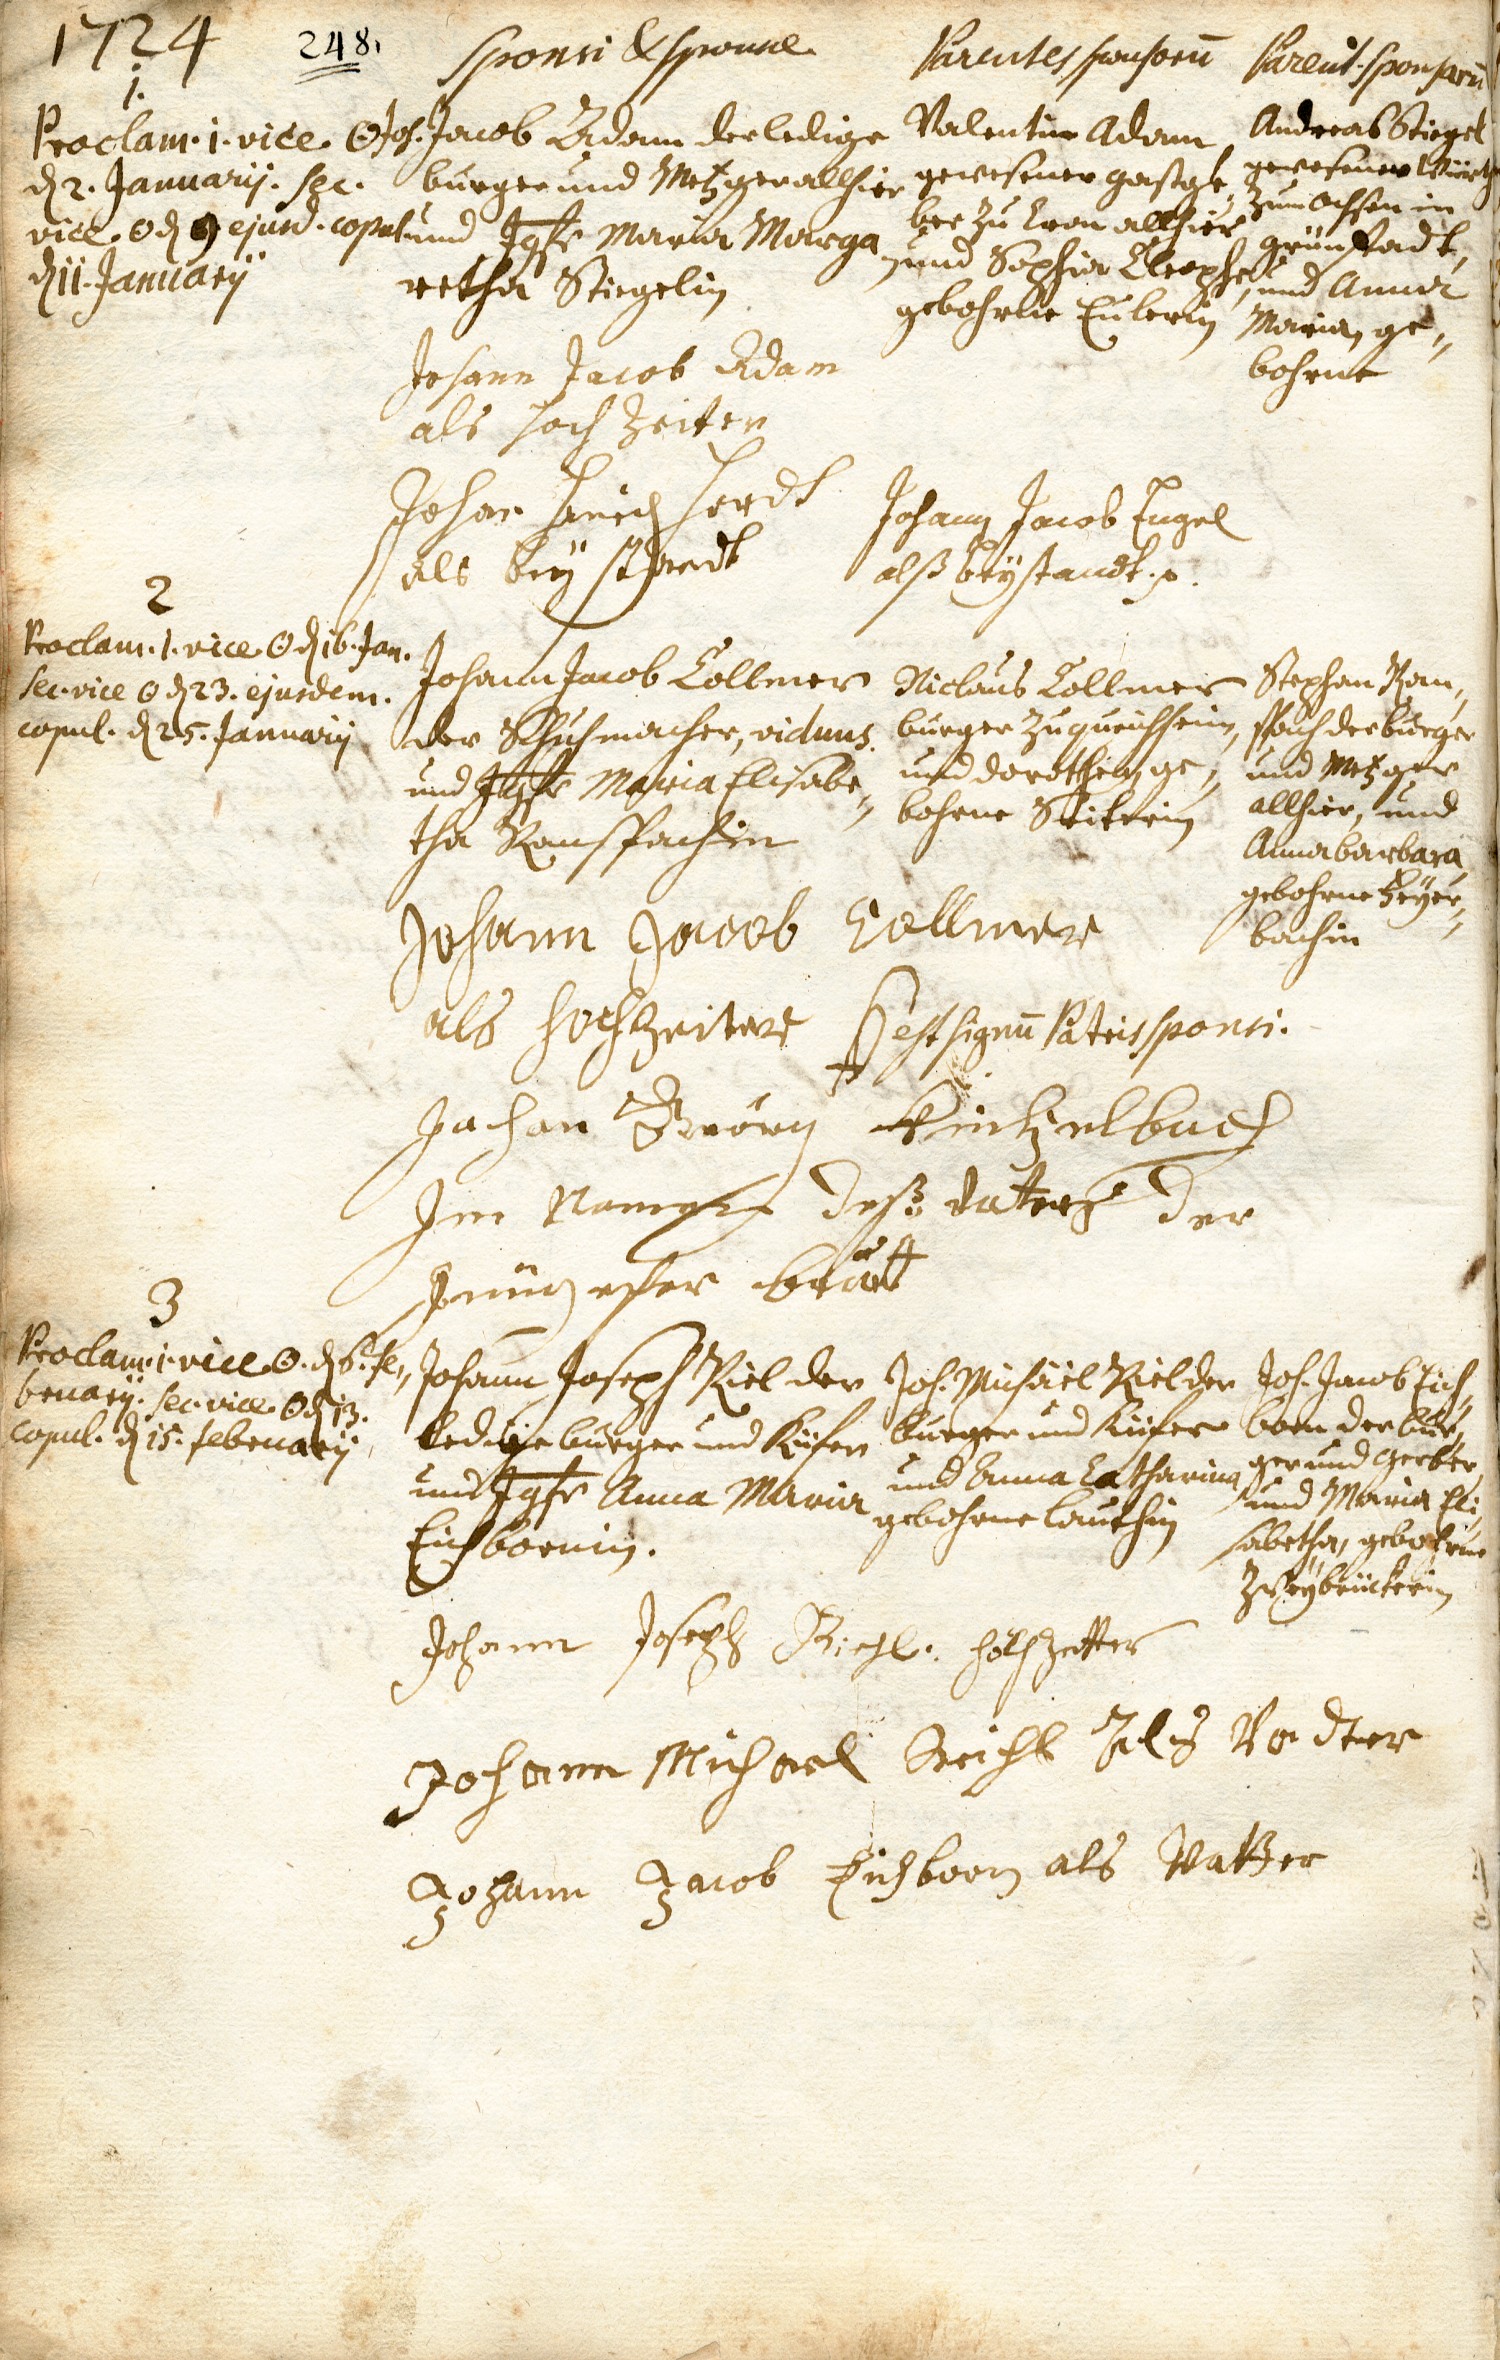 1724
248.
Sponsi & sponsae
Parentes sponsorū
Parent. sponsarū
1.
Proclam. 1. vice. ☉
d 2. Januarij. sec.
vice. ☉ d 9 ejusd. copul.
d 11. Januarij
Joh. Jacob Adam der ledige
burger und Metzger allhier
und Jgfr Maria Marga
retha Stiegelin
Valentin Adam
gewesener gastge-
ber zu Cron allhier
und Sophia Cleophe,
gebohrne Eulerin
Andreas Stiegel
gewesener Würth
zum Ochsen in
grünstadt,
und Anna
Maria, ge-
bohrne
Johann Jacob Adam
als Hochzeiter
Johan Henrich Herdt
als bey standt
Johann Jacob Engel
alß beystandt.
2
Proclam. 1. vice ☉ d 16. Jan.
sec. vice ☉ d 23. ejusdem.
copul. d 25. Januarij
Johann Jacob Collmer
der Schuhmacher, viduus.
und Jgfr Maria Elisabe-
tha Ranspachin
Niclaus Collmer
burger zu queichheim,
und dorothea, ge-
bohrne
Stephan Ran-
spach der burger
und Metzger
allhier, und
Anna barbara
gebohrne
bachin
Johann Jacob Collmer
als Hochzeiter
H est signū Patris sponsi.
Johan Görg
Im Namen deß Vatters der
Jungfer braut
3
Proclam. 1. vice ☉. d 6. fe-
bruarij. sec. vice ☉ d 13.
copul. d 15. februarij
Johann Joseph Riel der
ledige burger und Küfer
und Jgfr Anna Maria
Eichbornin.
Joh. Michäel Riel der
burger und Küfer
und Anna Catharina
gebohrne Lauthin
Joh. Jacob Eich-
born der bur-
ger und gerber,
und Maria Eli-
sabetha, gebohrne
Zweybrückerin
Johann Joseph Riehl. Hochzeiter
Johann Michael Riehl Als Vadter
Johann Jacob Eichborn als Vatter